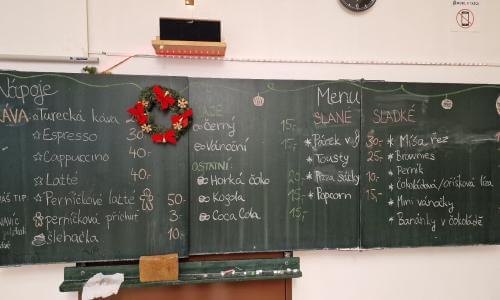 Nápoje
KÁVA:
☆ Turecká káva
☆ Espresso 30
☆ Cappuccino 40,-
☆ Latté 40,-
☆ Perníčkové latté 50,-
perníčková příchuť 3,-
šlehačka 10,-
TIP
ČAJE
černý 15,-
Vánoční 15,-
OSTATNÍ:
Horká čoko
Kofola 15,-
Coca Cola 15,-
Menu
SLANÉ
Párek v 30,-
Tousty 25,-
Pizza 10,-
Popcorn 15,-
SLADKÉ
* Míša řez
* Brownies
* Perník
* čokoládová/oříšková
* Mini vánočky
* Banánky v čokoládě